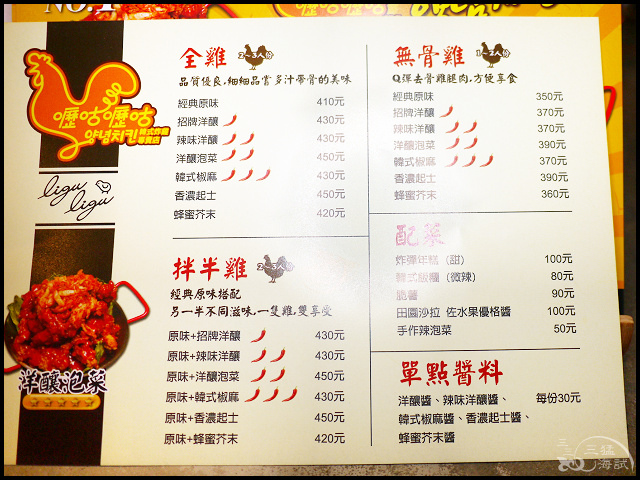 NO.1
嚦咕嚦咕
양념치킨
韓式炸雞
專賣店
ligu
ligu
洋釀泡菜
全雞
2~3人份
品質優良，細細品嘗多汁帶骨的美味
經典原味 410元
招牌洋釀 430元
辣味洋釀 430元
洋釀泡菜 450元
韓式椒麻 430元
香濃起士 450元
蜂蜜芥末 420元
拌半雞
2~3人份
經典原味搭配
另一半不同滋味，一隻雞，雙享受
原味+招牌洋釀 430元
原味+辣味洋釀 430元
原味+洋釀泡菜 450元
原味+韓式椒麻 430元
原味+香濃起士 450元
原味+蜂蜜芥末 420元
無骨雞
1~2人份
Q彈去骨雞腿肉，方便享食
經典原味 350元
招牌洋釀 370元
辣味洋釀 370元
洋釀泡菜 390元
韓式椒麻 370元
香濃起士 390元
蜂蜜芥末 360元
配菜
炸彈年糕（甜） 100元
韓式飯糰（微辣） 80元
脆薯 90元
田園沙拉 佐水果優格醬 100元
手作辣泡菜 50元
單點醬料
洋釀醬、辣味洋釀醬、 每份30元
韓式椒麻醬、香濃起士醬、
蜂蜜芥末醬